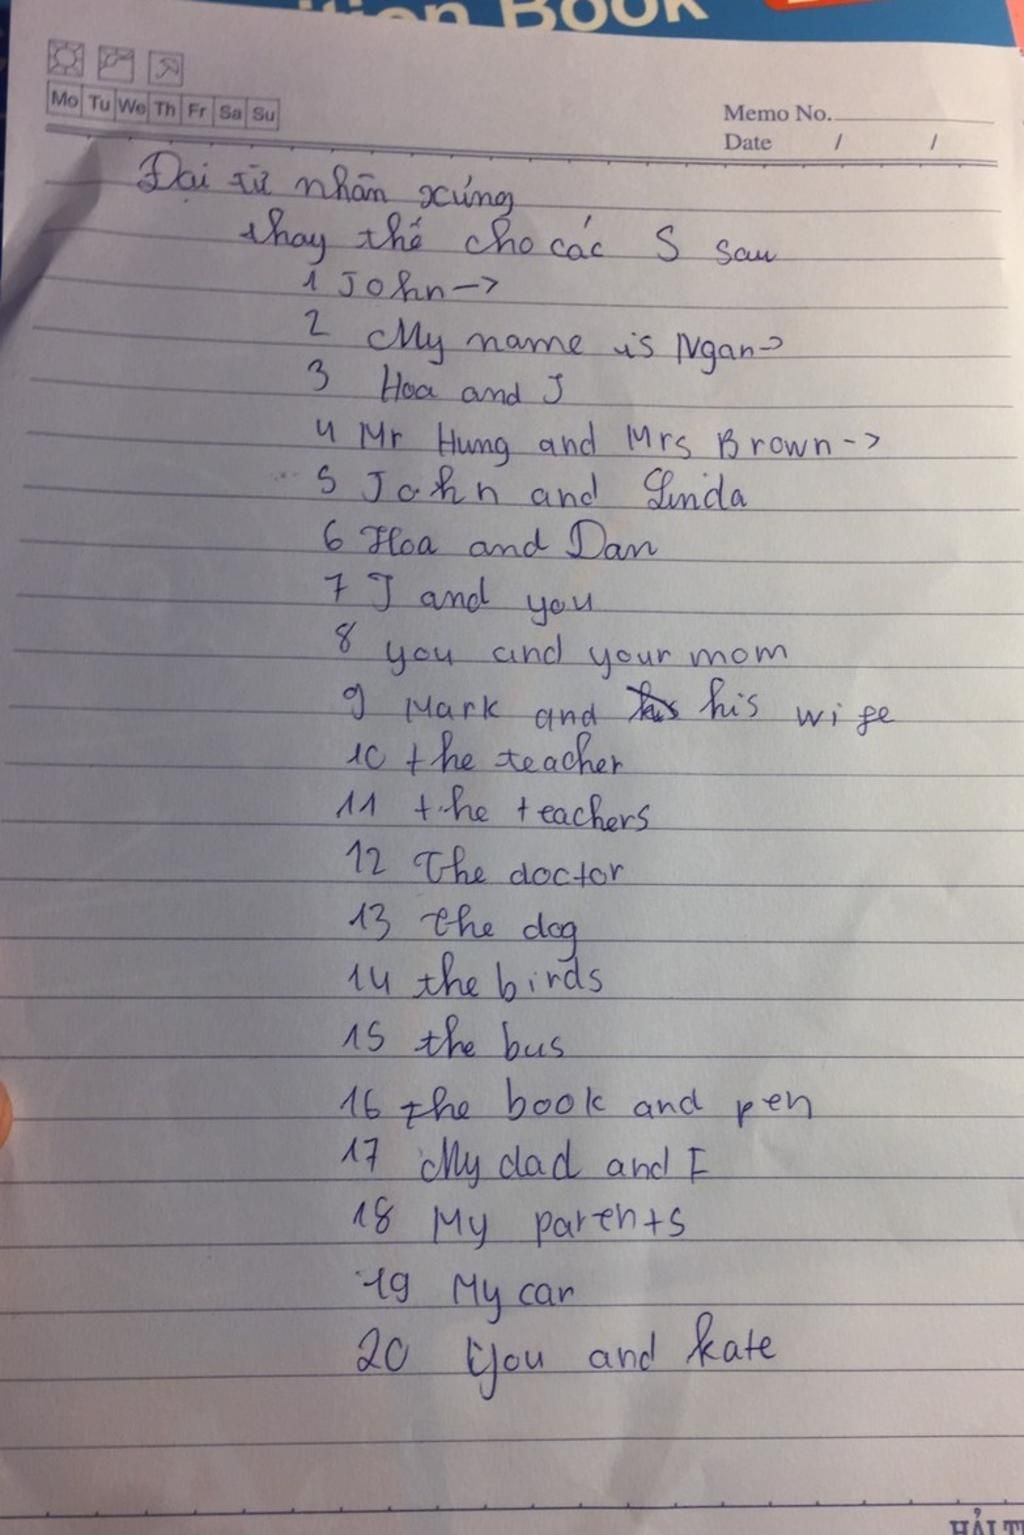 ition Book
Mo Tu We Th Fr Sa Su
Memo No.
Date / /
Đại từ nhân xứng
thay thế cho các S sau
1 John ->
2 My name is Ngan ->
3 Hoa and I
4 Mr Hung and Mrs Brown ->
5 John and Linda
6 Hoa and Dan
7 I and you
8 you and your mom
9 Mark and his wife
10 the teacher
11 the teachers
12 The doctor
13 the dog
14 the birds
15 the bus
16 the book and pen
17 My dad and I
18 My parents
19 My car
20 You and kate
HẢI T